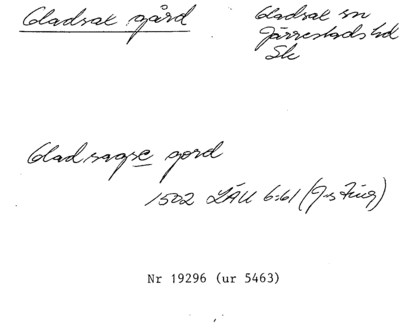 Gladsax gård
Gladsax sn
Järrestads hd
Sk
Gladsagxe gord
1502 LÄU 6:61
Nr 19296 (ur 5463)